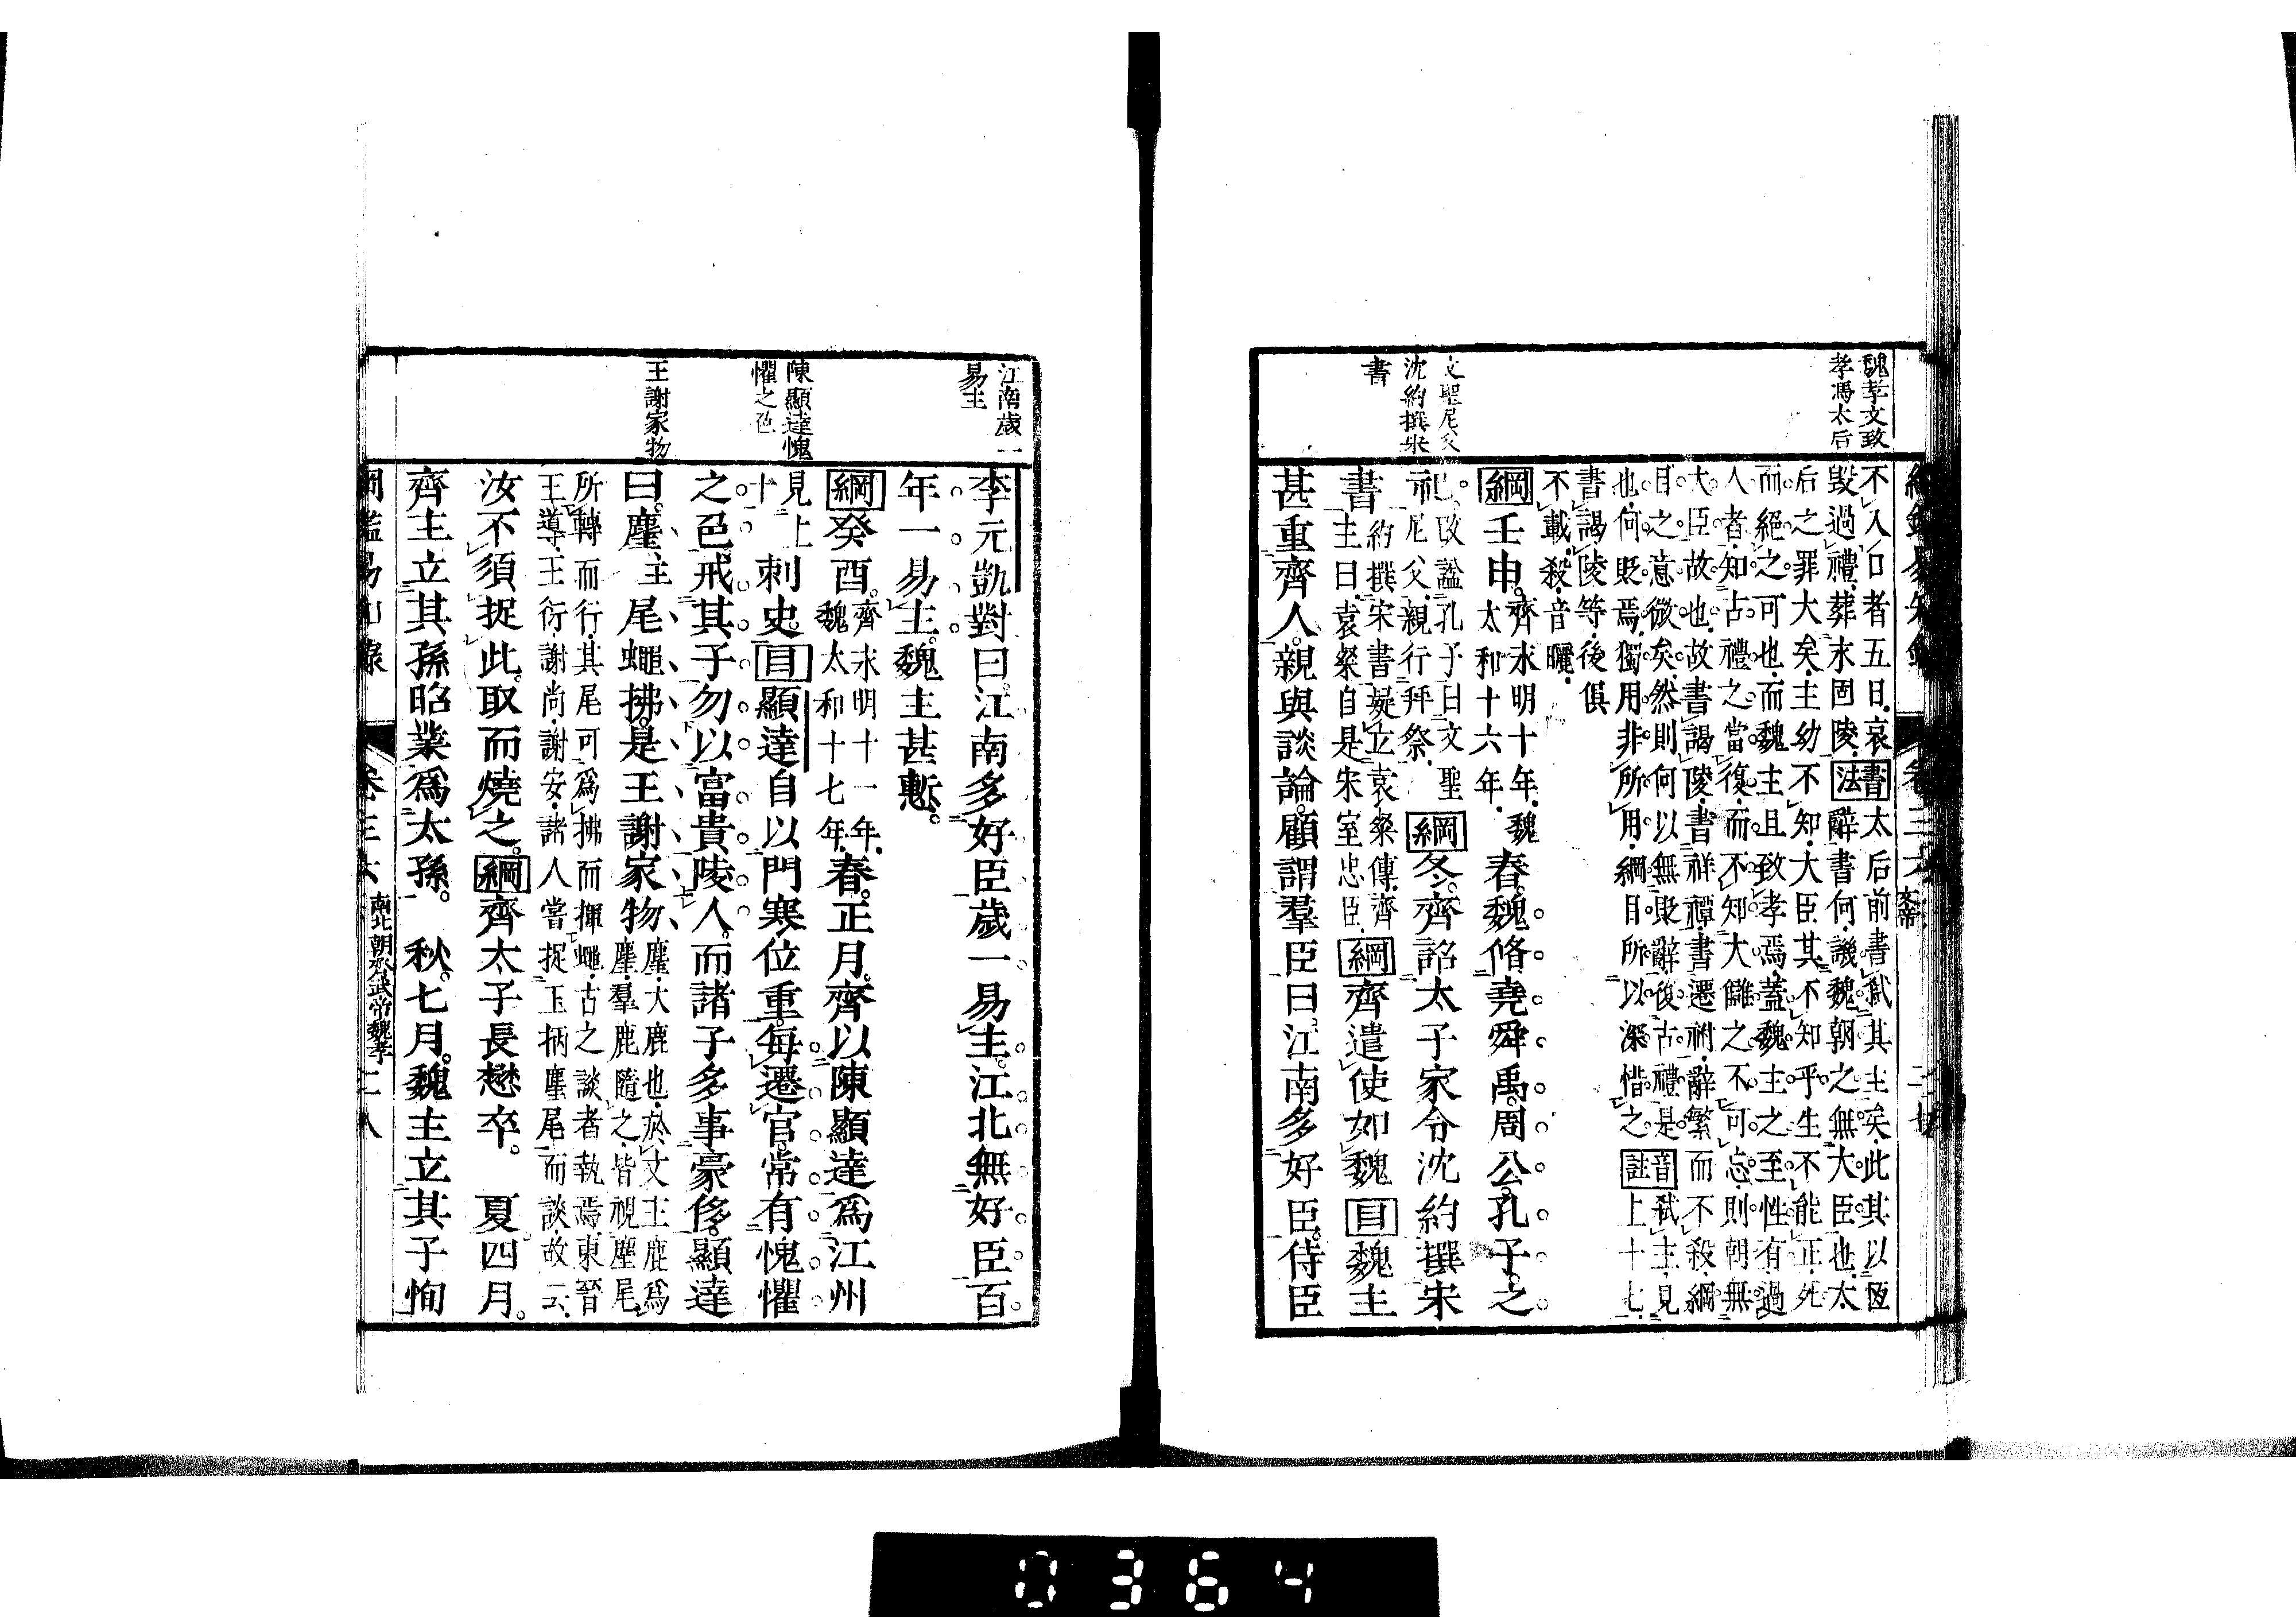 魏孝文致
孝馮太后
文聖尼父
沈約撰宋
書
不入口者五日。哀
毀過禮。葬永固陵。
書法
太后前書弒其主矣。此其以恆
辭書何。譏魏朝之無大臣也。太
后之罪大矣。主幼不知。大臣其不知乎。生不能正。死
而絕之可也。而魏主且致孝焉。蓋魏主之至性有過
人者。知古禮之當復。而不知大讎之不可忘。則朝無
大臣故也。故書謁陵。書祥禫。書遷祔。辭繁而不殺。綱
目之意微矣。然則何以無貶辭。復古禮是
也。何貶焉。獨用非所用。綱目所以深惜之。
音註
弒主。見
上十七。
書謁陵等。後俱
不載。殺。音曬。
綱壬申。齊永明十年。魏
太和十六年。
春。魏脩堯舜禹。周公。孔子之
祀。改謚孔子曰文聖
尼父。親行拜祭。
綱冬。齊詔太子家令沈約撰宋
書約撰宋書。疑立袁粲傳。齊
主曰。袁粲自是宋室忠臣。
綱齊遣使如魏目魏主
甚重齊人。親與談論。顧謂羣臣曰。江南多好臣。侍臣
江南歲一
易主
陳顯達愧
懼之色
王謝家物
李元凱對曰。江南多好臣。歲一易主。江北無好臣。百
年一易主。魏主甚慙。
綱癸酉。齊永明十一年。
魏太和十七年。
春。正月。齊以陳顯達爲江州
見上
十
刺史。目顯達自以門寒位重。每遷官。常有愧懼
之色。戒其子勿以富貴陵人。而諸子多事豪侈。顯達
曰。麈主尾蠅拂。是王謝家物
麈。大鹿也。於文主鹿爲
麈。羣鹿隨之。皆視麈尾
所轉而行。其尾可爲拂而揮蠅。古之談者執焉。東晉
王導。王衍。謝尚。謝安。諸人嘗捉玉柄麈尾而談。故云。
汝不須捉此。取而燒之。綱齊太子長懋卒。 夏四月。
齊主立其孫昭業爲太孫。 秋。七月。魏主立其子恂
南北朝齊武帝魏孝
二八
0364